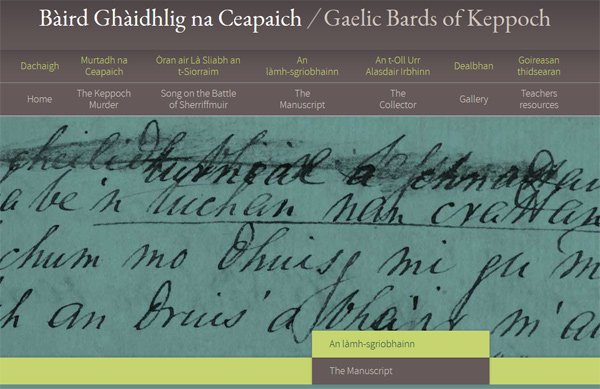 Bàird Ghàidhlig na Ceapaich / Gaelic Bards of Keppoch
Dachaigh
Murtadh na
Ceapaich
Òran air Là Sliabh an
t-Siorraim
An
làmh-sgrìobhainn
An t-Oll Urr
Alasdair Irbhinn
Dealbhan
Goireasan
thidsearan
Home
The Keppoch
Murder
Song on the Battle
of Sherriffmuir
The
Manuscript
The
Collector
Gallery
Teachers
resources
a be'n tuchan nan
chum mo dhuisg mi gu m
h an Druis'
An làmh-sgrìobhainn
The Manuscript